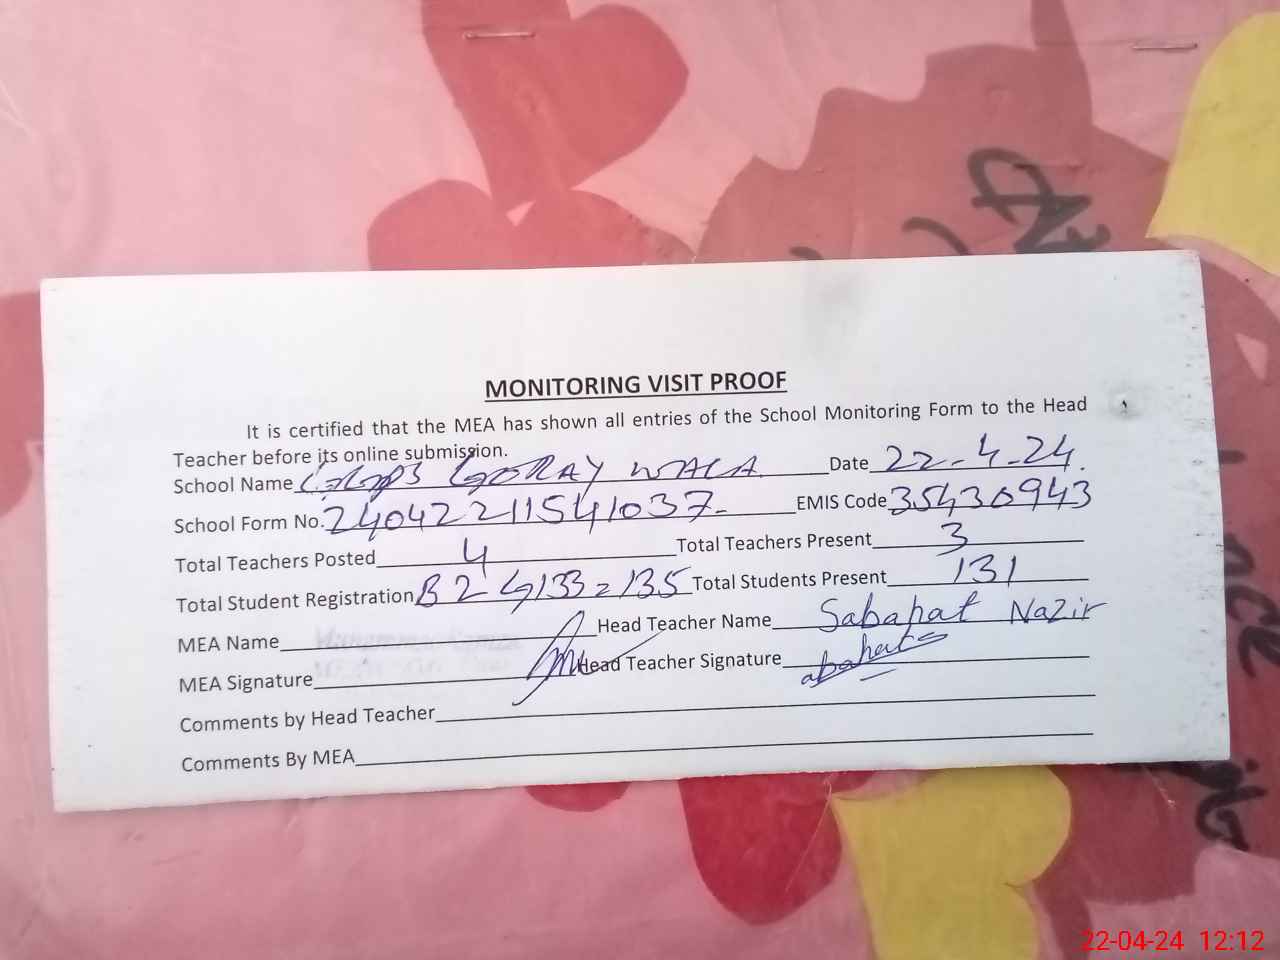 MONITORING VISIT PROOF
It is certified that the MEA has shown all entries of the School Monitoring Form to the Head
Teacher before its online submission.
School Name GORAY WALA Date 22-4-24.
School Form No. 24042211541037- EMIS Code 35430943
Total Teachers Posted 4 Total Teachers Present 3
Total Student Registration B 2 G 133 = 135 Total Students Present 131
MEA Name Head Teacher Name Sabahat Nazir
MEA Signature Head Teacher Signature
Comments by Head Teacher
Comments By MEA
22-04-24 12:12